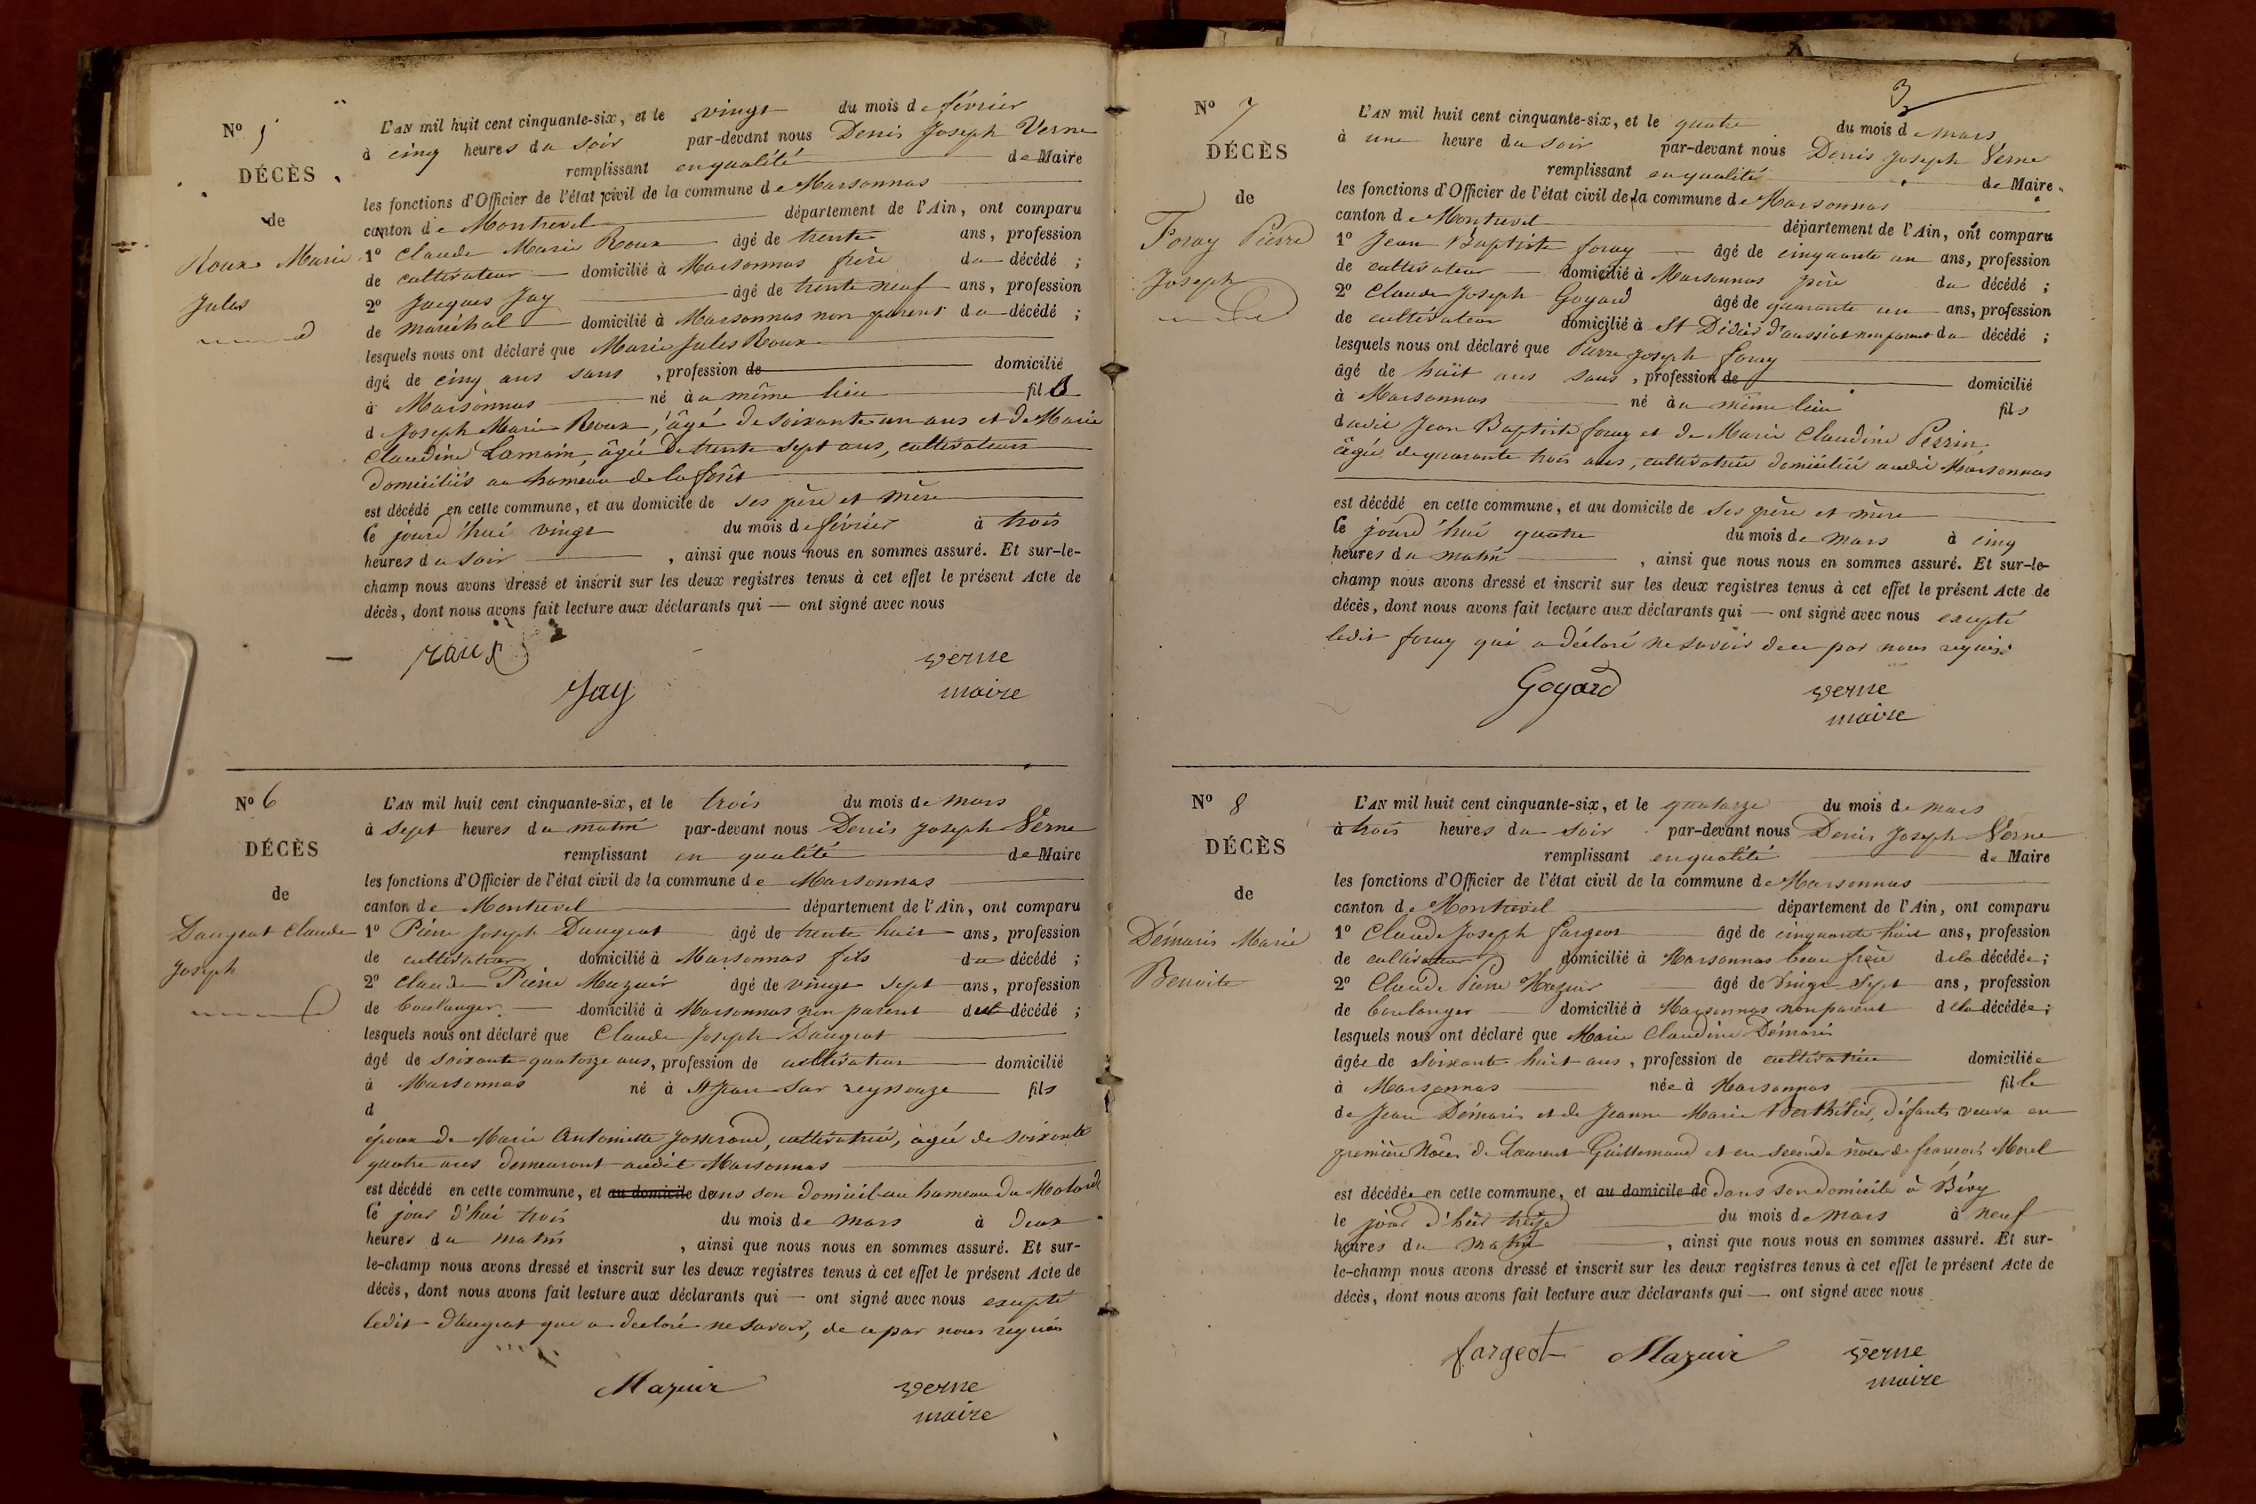 N° 5
DÉCÈS
de
Roux Marie
Jules
L'AN mil huit cent cinquante-six, et le vingt du mois de février
à cinq heures du soir par-devant nous Denis Joseph Verne
remplissant en qualité de Maire
les fonctions d'Officier de l'état civil de la commune de Marsonnas
canton de Montrevel département de l'Ain, ont comparu
1° Claude Marie Roux âgé de trente ans, profession
de cultivateur domicilié à Marsonnas frère du décédé ;
2° Jacques Jay âgé de trente neuf ans, profession
de maréchal domicilié à Marsonnas non parent du décédé ;
lesquels nous ont déclaré que Marie Jules Roux
âgé de cinq ans sans , profession de domicilié
à Marsonnas né à u même lieu fils
de Joseph Marie Roux, âgé de soixante un ans et de Marie
Claudine Lamain, âgée de trente sept ans, cultivateurs
domiciliés au hameau de la forêt
est décédé en cette commune, et au domicile de ses père et mère
le jourd'hui vingt du mois de février à trois
heures du soir , ainsi que nous nous en sommes assuré. Et sur-le-
champ nous avons dressé et inscrit sur les deux registres tenus à cet effet le présent Acte de
décès, dont nous avons fait lecture aux déclarants qui — ont signé avec nous
roux
Jay
verne
maire
N° 6
DÉCÈS
de
Daugeat Claude
Joseph
L'AN mil huit cent cinquante-six, et le trois du mois de mars
à sept heures du matin par-devant nous Denis Joseph Verne
remplissant en qualité de Maire
les fonctions d'Officier de l'état civil de la commune de Marsonnas
canton de Montrevel département de l'Ain, ont comparu
1° Pierre Joseph Daugeat âgé de trente huit ans, profession
de cultivateur domicilié à Marsonnas fils du décédé ;
2° Claude Pierre Mazuir âgé de vingt sept ans, profession
de boulanger domicilié à Marsonnas non parent du décédé ;
lesquels nous ont déclaré que Claude Joseph Daugeat
âgé de soixante quatorze ans, profession de cultivateur domicilié
à Marsonnas né à St Jean sur reyssouze fils
d
époux de Marie Antoinette Josserand, cultivatrice, âgée de soixante
quatre ans demeurant audit Marsonnas
est décédé en cette commune, et au domicile dans son domicile au hameau du
le jour d'hui trois du mois de mars à deux
heures du matin , ainsi que nous nous en sommes assuré. Et sur-
le-champ nous avons dressé et inscrit sur les deux registres tenus à cet effet le présent Acte de
décès, dont nous avons fait lecture aux déclarants qui — ont signé avec nous excepté
ledit daugeat qui a déclaré ne savoir, de ce par nous requis
Mazuir
verne
maire
3
N° 7
DÉCÈS
de
Foray Pierre
Joseph
L'AN mil huit cent cinquante-six, et le quatre du mois de mars
à une heure du soir par-devant nous Denis Joseph Verne
remplissant en qualité de Maire
les fonctions d'Officier de l'état civil de la commune de Marsonnas
canton de Montrevel département de l'Ain, ont comparu
1° Jean Baptiste foray âgé de cinquante un ans, profession
de cultivateur domicilié à Marsonnas père du décédé ;
2° Claude Joseph Goyard âgé de quarante un ans, profession
de cultivateur domicilié à St Didier d'aussiat non parent du décédé ;
lesquels nous ont déclaré que Pierre Joseph foray
âgé de huit ans sans , profession de domicilié
à Marsonnas né à u même lieu fils
dudit Jean Baptiste foray et de Marie Claudine Perrin,
âgée de quarante trois ans, cultivatrice domiciliée audit Marsonnas
est décédé en cette commune, et au domicile de ses père et mère
le jourd'hui quatre du mois de mars à cinq
heures du matin , ainsi que nous nous en sommes assuré. Et sur-le-
champ nous avons dressé et inscrit sur les deux registres tenus à cet effet le présent Acte de
décès, dont nous avons fait lecture aux déclarants qui — ont signé avec nous excepté
ledit foray qui a déclaré ne savoir de ce par nous requis.
Goyard
verne
maire
N° 8
DÉCÈS
de
Démaris Marie
Benoite
L'AN mil huit cent cinquante-six, et le quatorze du mois de mars
à trois heures du soir par-devant nous Denis Joseph Verne
remplissant en qualité de Maire
les fonctions d'Officier de l'état civil de la commune de Marsonnas
canton de Montrevel département de l'Ain, ont comparu
1° Claude Joseph fargeot âgé de cinquante huit ans, profession
de cultivateur domicilié à Marsonnas beau frère de la décédée ;
2° Claude Pierre Mazuir âgé de vingt sept ans, profession
de boulanger domicilié à Marsonnas non parent de la décédée ;
lesquels nous ont déclaré que Marie Claudine Démaris
âgée de soixante huit ans, profession de cultivatrice domiciliée
à Marsonnas née à Marsonnas fille
de Jean Démaris et de Jeanne Marie défunts veuve en
première nôces de Laurent Guillemaud et en seconde nôces de françois Morel
est décédée en cette commune, et au domicile de dans son domicile à Bévy
le jour d'hier treize du mois de mars à neuf
heures du matin , ainsi que nous nous en sommes assuré. Et sur-
le-champ nous avons dressé et inscrit sur les deux registres tenus à cet effet le présent Acte de
décès, dont nous avons fait lecture aux déclarants qui — ont signé avec nous
fargeot
Mazuir
verne
maire